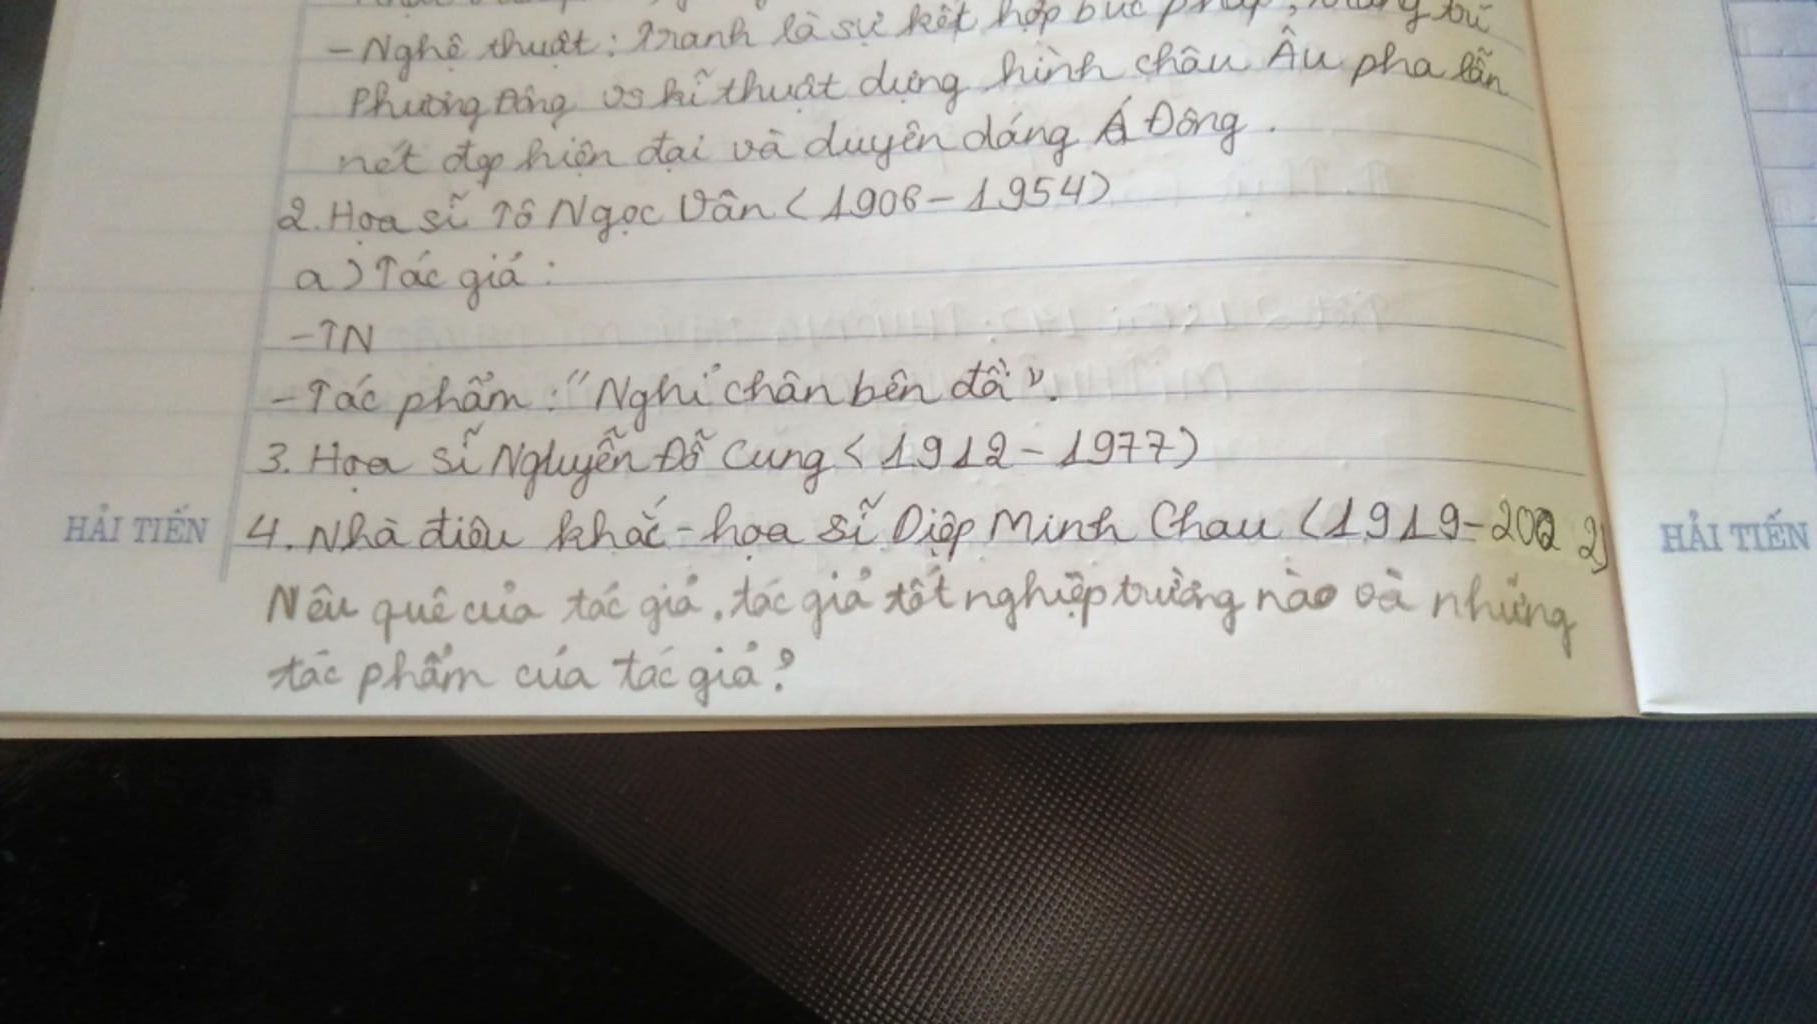 - Nghệ thuật: Tranh là sự kết hợp bút pháp, trang trí
Phương Đông vs kĩ thuật dựng hình châu Âu pha lẫn
nét đẹp hiện đại và duyên dáng Á Đông.
2. Họa sĩ Tô Ngọc Vân (1906-1954)
a) Tác giả:
- TN
- Tác phẩm: "Nghỉ chân bên đồi".
3. Họa sĩ Nguyễn Đỗ Cung (1912-1977)
HẢI TIẾN 4. Nhà điêu khắc - họa sĩ Diệp Minh Chau (1919-2002) HẢI TIẾN
Nêu quê của tác giả, tác giả tốt nghiệp trường nào và những
tác phẩm của tác giả?